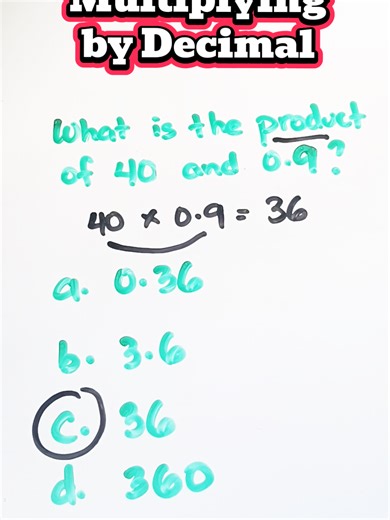 Multiplying
by Decimal
What is the product
of 40 and 0.9?
40 x 0.9 = 36
a. 0.36
b. 3.6
c. 36
d. 360